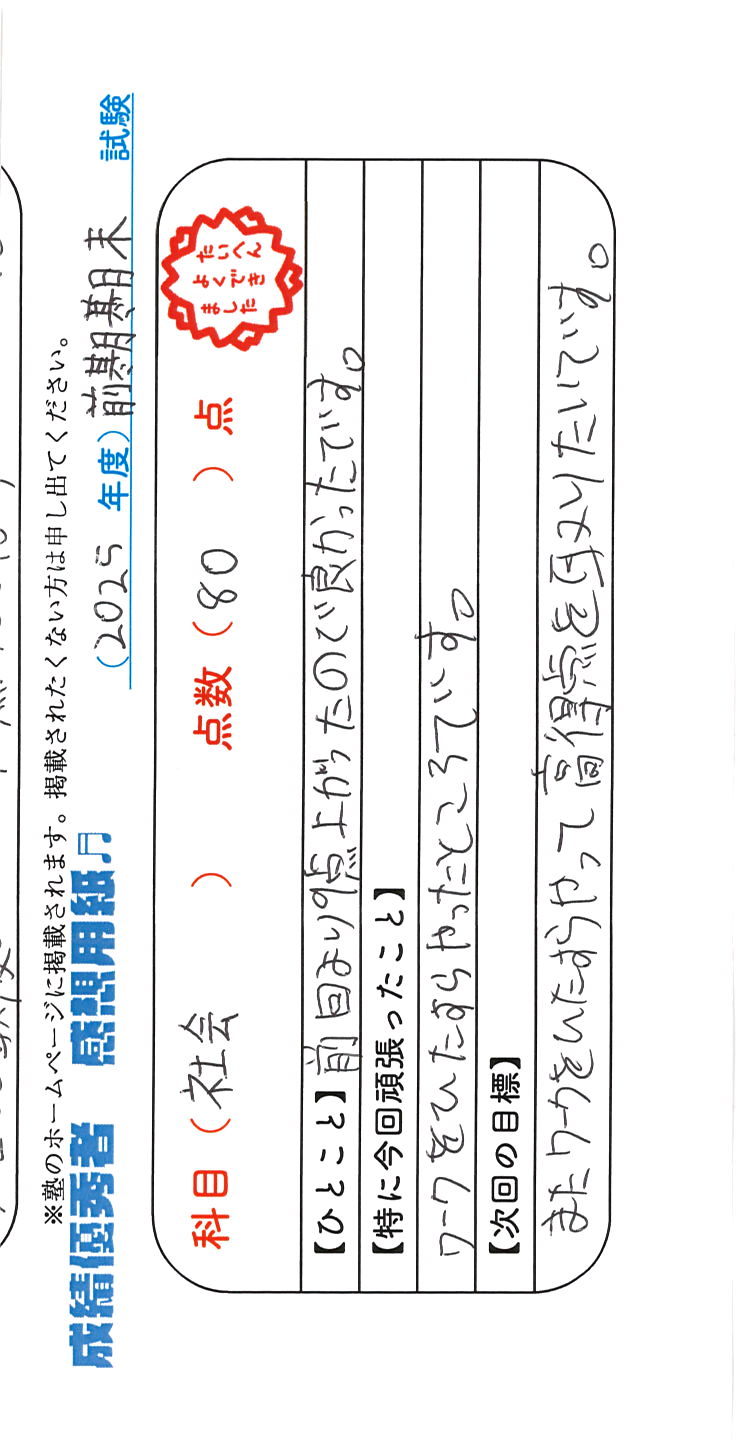 ※塾のホームページに掲載されます。掲載されたくない方は申し出てください。
成績優秀者 感想用紙♬ (2025 年度) 前期期末 試験
科目 ( 社会 ) 点数 ( 80 ) 点
たいへん
よくでき
ました
【ひとこと】前回より9点上がったので良かったです。
【特に今回頑張ったこと】
ワークをひたすらやったところです。
【次回の目標】
またワークをひたすらやって高得点を取りたいです。